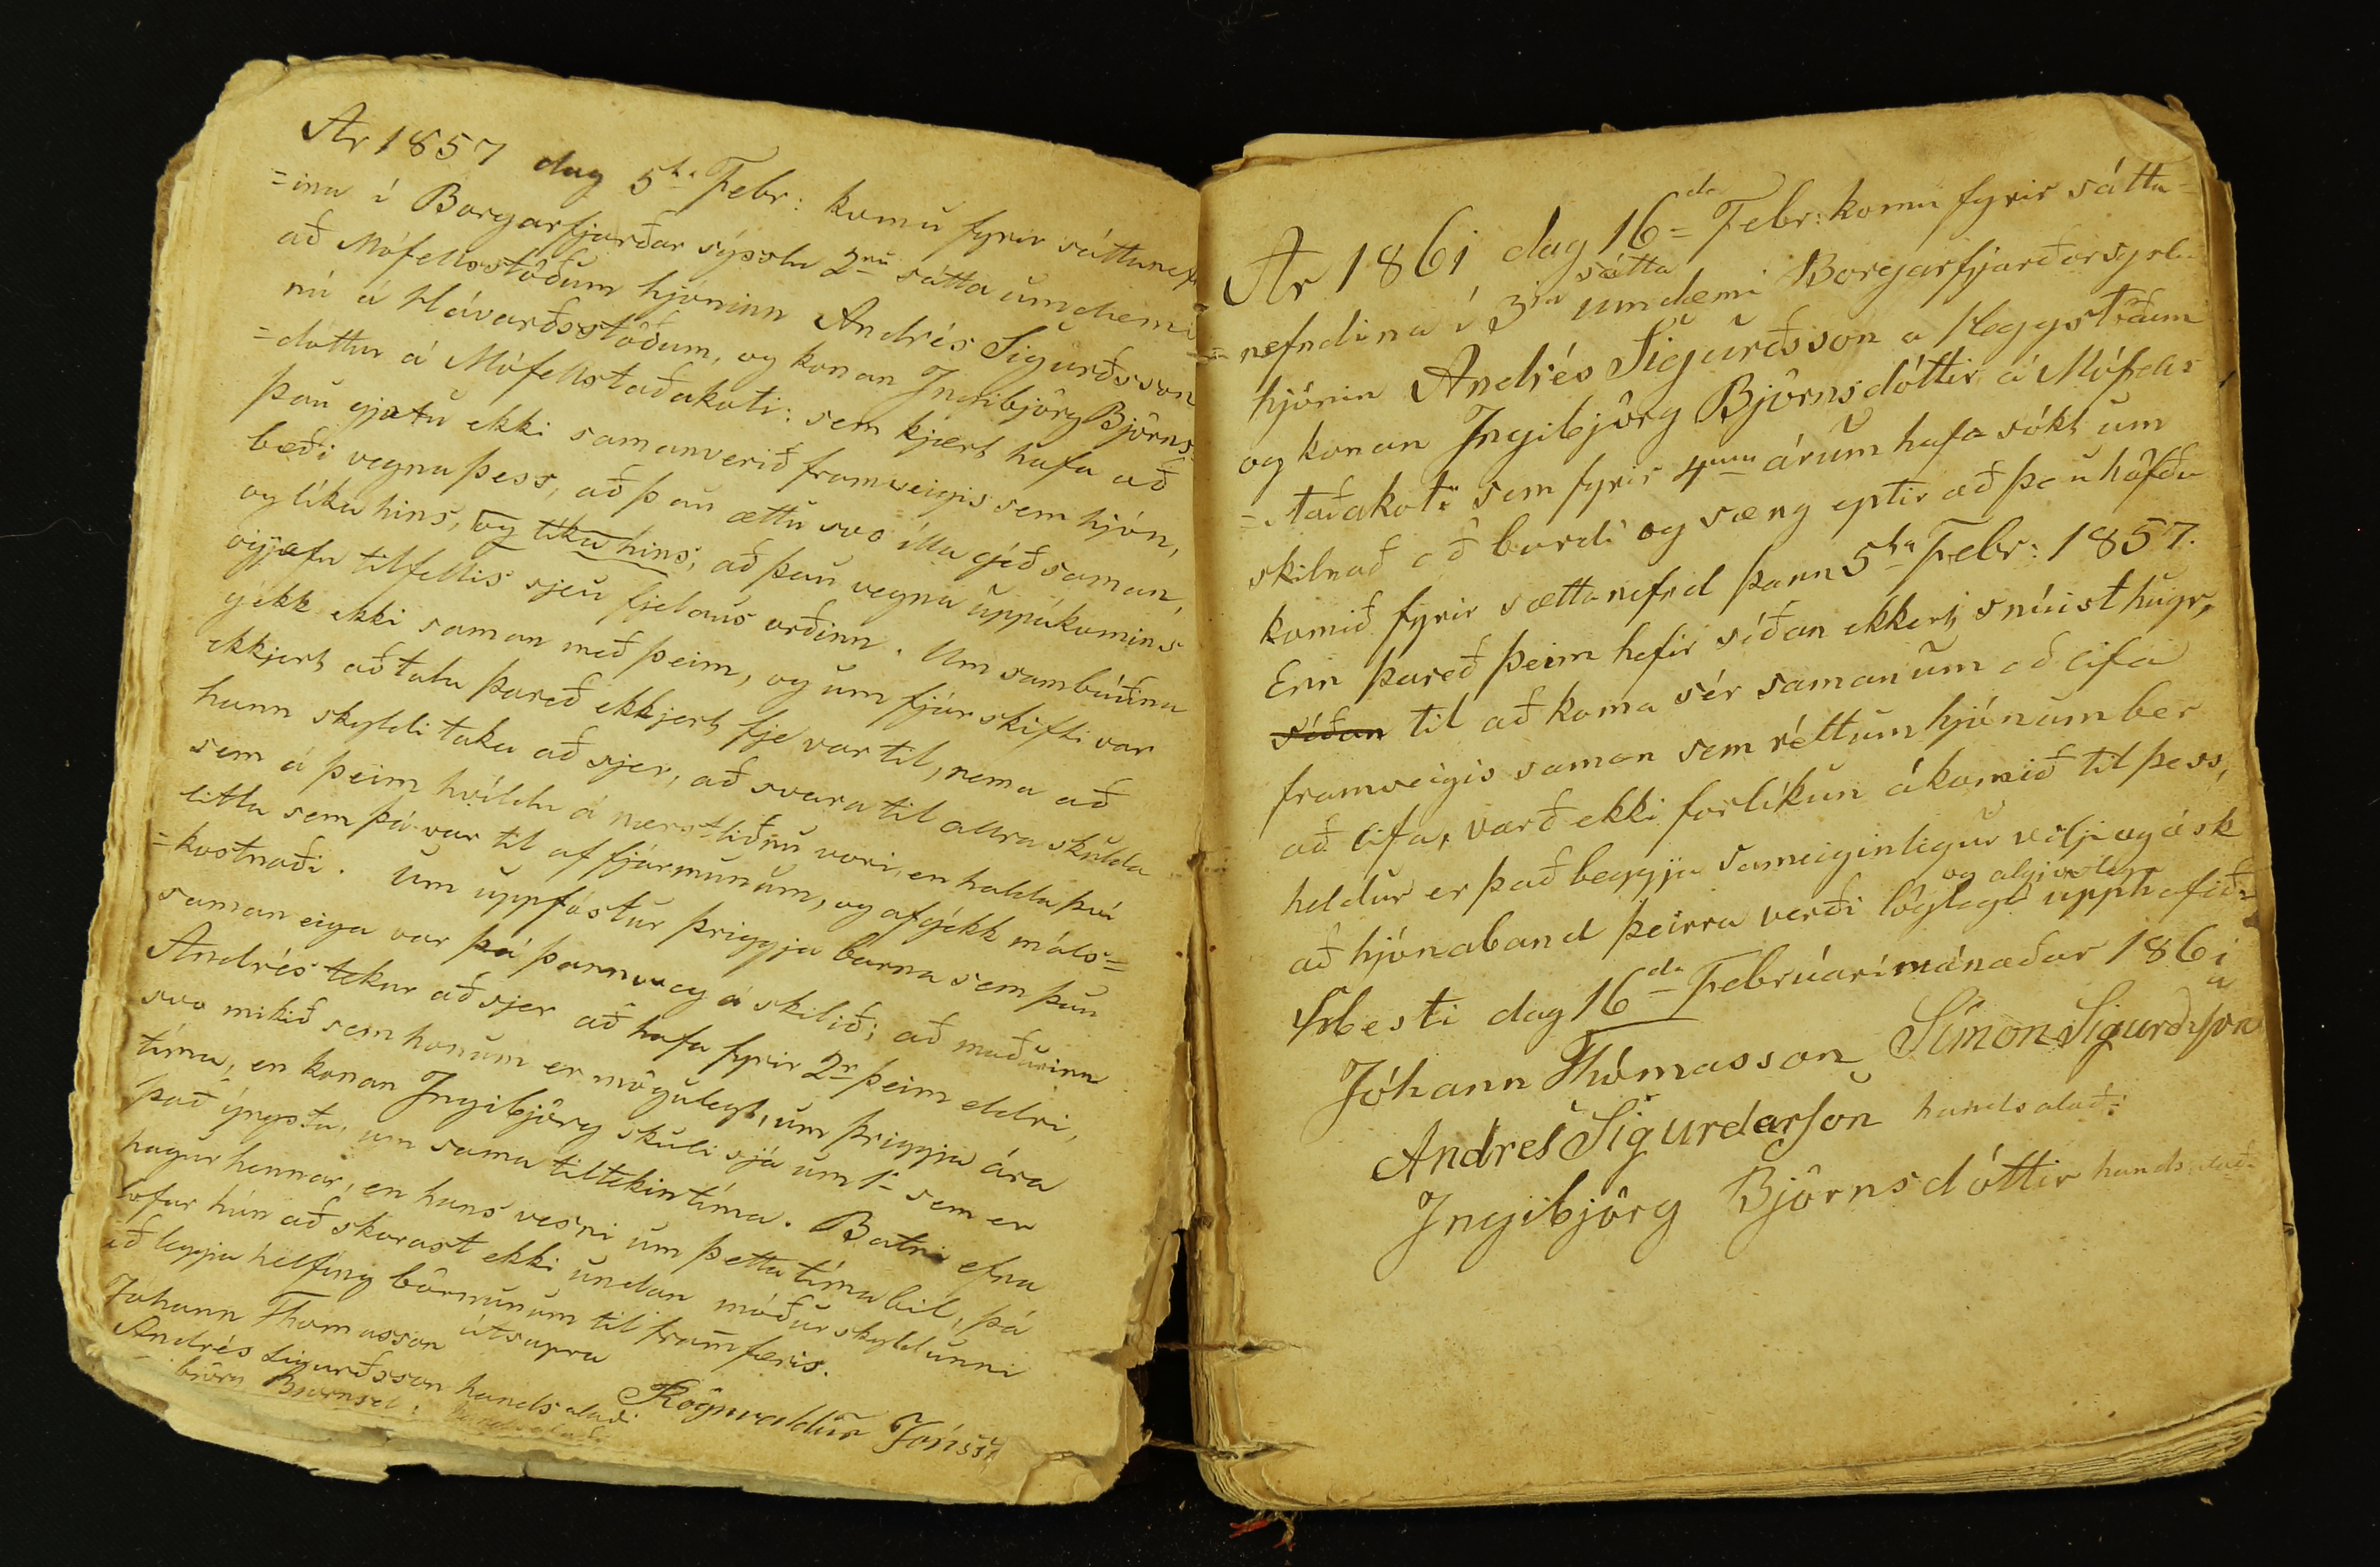 Ar 1857 dag 5ta Febr: komu fyrir sáttanef
=ina í Borgarfjarðar sýsslu 2ru sátta umdæmi
að Mófellsstöðum hjóninn Andrés Sigurðsson
nú á Hávarðsstöðum, og konan Ingibjörg Björns=
=dóttur á Mófellstaðakoti: sem kjært hafa að
þau gjætu ekki samanverið framveigis sem hjón,
bæði vegna þess, að þau ættu svo illa gjéð saman,
og líka hins, og líka hins, að þau vegna uppákomins
ógjæfu tilfellis sjeu fjelaus orðinn. Um sambúðina
gékk ekki saman með þeim, og um fjár skifti var
ekkjert að tala þareð ekkjert fje var til, nema að
hann skyldi taka að sjer, að svara til allra skulda
sem á þeim hvíldu á næstliðnu vori, en halda því
litla sem þá var til af fjármunum, og afgjékk máls=
=kostnaði. Um uppfóstur þriggja barna sem þau
saman eiga var þá þannveg á skilið; að maðurinn
Andrés tekur að sjer að hafa fyrir 2r þeim eldri,
svo mikið sem honum er mögulegt, um þriggja ára
tíma, en konan Ingibjörg skuli sjá um 1- sem er
það ýngsta, um sama tiltekin tíma. Batni efna
hagur hennar, en hans vesni um þetta tíma bil, þá
lofar hún að skorast ekki undan móður skyldunni
að leggja helfing börnunum til framfæris.
útsupra
Johann Thomasson
Rögnvaldur Jónsso
Andrés Sigurðsson handsalaði
björn Björnsd: handsalaði
Ar 1861 dag 16da Febr: komu fyrir sátta=
=nefndina í 3ja sátta umdæmi Borgarfjarðarsyslu
hjónin Andrés Sigurðsson a Heggstöðum
og konan Ingibjörg Björnsdóttir á Mófells
=staðakoti sem fyrir 4um árum hafa sókt um
skilnað að borði og sæng eptir að þau höfðu
komið fyrir sættanefnd þann 5ta Febr: 1857.
Enn þareð þeim hefir síðan ekkert snúist hugr,
síðan til að koma sér saman um að lifa
framveigis saman sem réttum hjónum ber
að lifa, varð ekki forlíkun ákomið til þess,
heldur er það beggja sameiginligur vilji og ósk
að hjónaband þeirra verði löglegt og algjörlega upphafið.
Hesti dag 16da Febrúarí mánaðar 1861
Jóhann Thómasson Símon Sigurðsson
Andres Sigurdarson handsalað:
Ingibjörg Björnsdóttir handsalað: